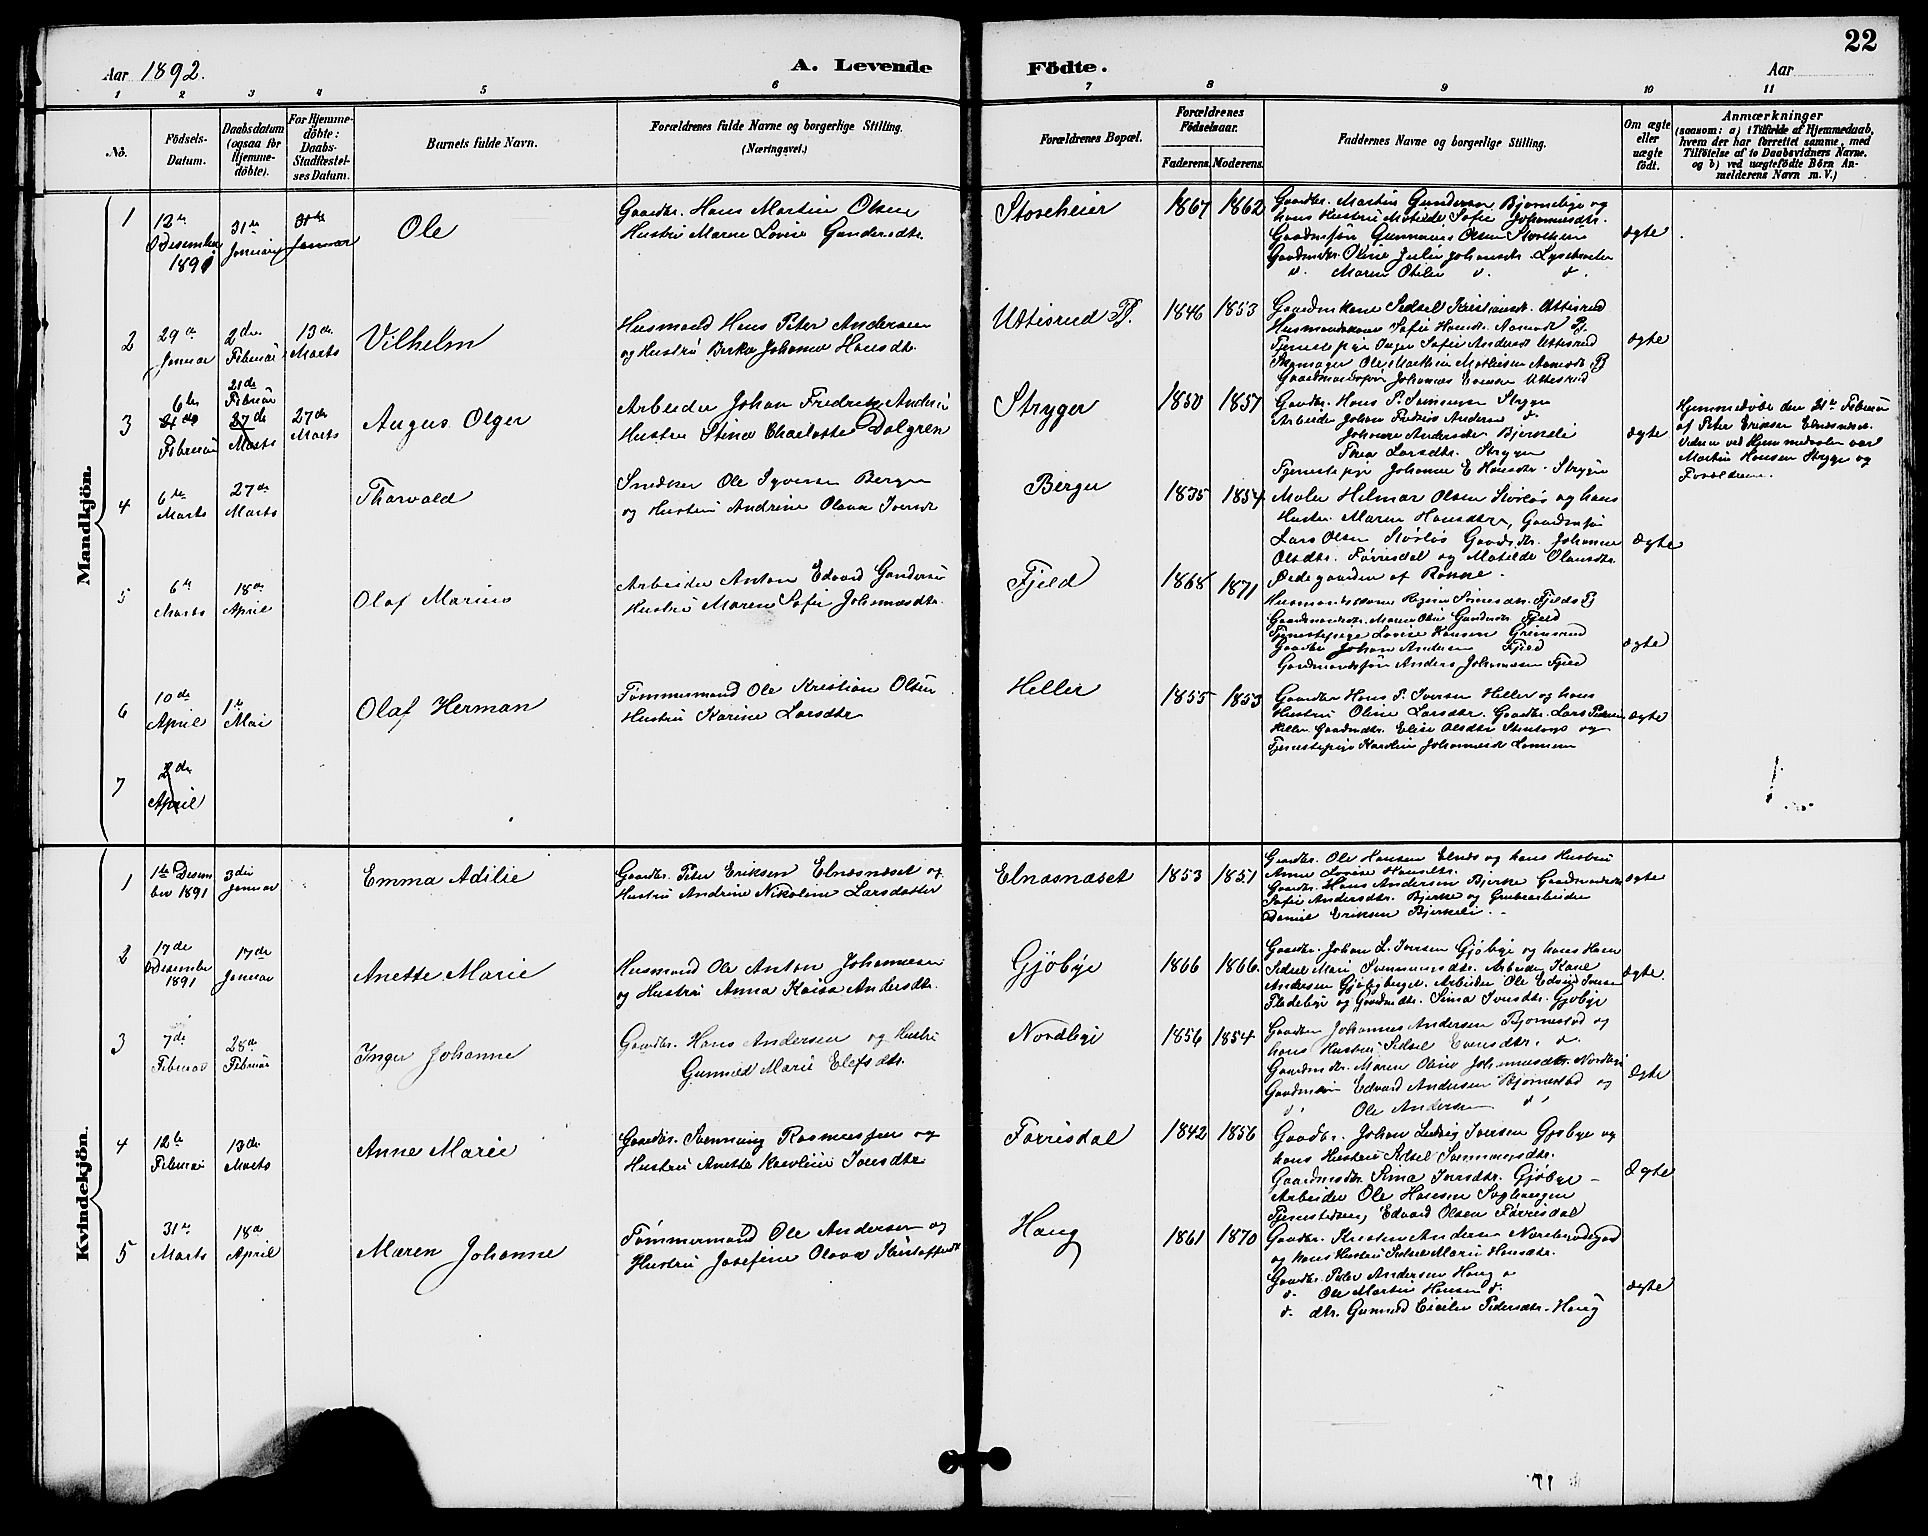 22
Aar 1892.
A. Levende Födte.
Aar
1 2 3 4 5 6 7 8 9 10 11
No.
Födsels-Datum.
Daabsdatum (ogsaa for Hjemme-döbte).
For Hjemme-döbte: Daabs-Stadfæstel-ses Datum.
Barnets fulde Navn.
Forældrenes fulde Navne og borgerlige Stilling. (Næringsvei.)
Forældrenes Bopæl.
Forældrenes Födselsaar.
Faderens. Moderens.
Faddernes Navne og borgerlige Stilling.
Om ægte eller uægte födt.
Anmærkninger
(saasom: a) i Tilfælde af Hjemmedaab, hvem der har forrettet samme, med Tilföielse af to Daabsvidners Navne. og b) ved uægtefödte Börn An-melderens Navn m. V.)
Mandkjön.
1 12te Desember 1891 31te Januar 31te Januar
Ole
Gaardbr. Hans Martin Olsen
Hustru Maren Lovise Gundersdtr
Storeheier 1867 1862
Gaardbr. Martin Gundersen Bjørnebye og
hans Hustru Matilde Sofie Johannesdtr.
Gaardmsøn Gunnerius Olsen Storeheier
Gaardmdtr. Oline Julie Johansdtr.
d. Maren Otilie d. d.
ægte
2 29de Januar 2den Februar 13de Marts
Vilhelm
Husmand Hans Peter Andersen
og Hustru Johanne Hansdtr.
Uttisrud P. 1846 1853
Gaardmkone Sidsel Kristiansdtr. Uttisrud
Husmandskone Sofie Hansdtr.
Tjenestepige Inger Sofie Andersdtr Uttisrud
Skomager Ole Mathisen
Gaardmandssøn Johannes Evensen Uttisrud
ægte
3 6te Februar 21de Februar 27de Marts 27de Marts
Augus Olger
Arbeider Johan Fredrik Anders
Hustru Stina Charlotte Dolgren
Stryger 1850 1857
Gaardbr. Hans P. Simensen Stryger
Arbeider Johan Andersen d.
Johanne Andersdtr Bjerkeli
Thea Larsdtr. Stryger
Tjenestepige Johanne E Hansdtr. Stryger
ægte
Hjemmedøbt den 21de Februar
af Peter Eriksen Elnesneset.
Vidner ved Hjemmedaaben var
Martin Hansen Stryge og
Forældrene.
4 6te Marts 27de Marts
Thorvald
Snedker Ole Syversen Berger
og Hustru Andrine Olava Iversdtr
Berger 1835 1854
Maler Hilmar Olsen Kørløs og hans
Hustru Maren Hansdtr, Gaardmsøn
Lars Olsen Gaardsdtr. Johanne
Olsdtr. Førrisdal og Matilde Olausdtr.
ægte
5 6te Marts 18de April
Olaf Marius
Arbeider Anton Edvard Gundersen
Hustru Maren Sofie Johannesdtr.
Fjeld 1868 1871
Ødegaarden af Rønne.
Husmandskone Simensdtr. Fjelds P
Gaardmandsdtr. Maren Oline Gundersdtr Fjeld
Tjenestepige Lovise Hansen Grimsrud
Gaardbr Johan Andersen Fjeld
Gaardmandssøn Anders Johannesen Fjeld
ægte
6 10de April 1te Mai
Olaf Herman
Tømmermand Ole Kristian Olsen
Hustru Karine Larsdtr
Heller 1855 1853
Gaardbr Hans P. Iversen Heller og hans
Hustru Oline Larsdtr. Gaardbr. Lars Pedersen
Heller. Gaardmdtr. Elise Olsdtr og
Tjenestepige Karoline Johannesdtr
ægte
7 2de April
Kvindekjön.
1 1te Desember 1891 3die Januar
Emma Adilie
Gaardbr. Peter Eriksen Elnæsnæset og
Hustru Andrine Nikoline Larsdatter
Elnæsnæset 1853 1851
Gaardbr. Ole Hansen Elnes og hans Hustru
Anne Lovise Hansdtr.
Gaardbr. Hans Andersen Bjerke Gaardmandsdtr
Sofie Andersdtr. Bjerke og Grubearbeider
Daniel Eriksen Bjerkeli.
ægte
2 17de Desember 1891 17de Januar
Anette Marie
Husmand Ole Anton Johannesen
og Hustru Anna Kaisa Andersdtr.
Gjøbye 1866 1866
Gaardbr. Johan L. Iversen Gjøbye og hans Kone
Sidsel Marie Svenningsdtr. Arbeider Karl
Andersen Gjøbyberget. Arbeider Ole Edvin Iversen
Fladebye og Gaardmdtr. Sima Iversdtr. Gjøbye
ægte
3 7de Februar 28de Februar
Inger Johanne
Gaardbr. Hans Andersen og Hustru
Gunnild Marie Elefsdtr.
Nordbye 1856 1854
Gaardbr Johannes Andersen Bjørnestad og
hans Hustru Sidsel Evensdtr. d.
Gaardmdtr. Maren Oline Johannesdtr. Nordbye
Gaardmsøn Edvard Andersen Bjørnestad og
d. Ole Andersen d.
Ægte
4 12te Februar 13de Marts
Anne Marie
Gaardbr. Svenning Rasmussen og
Hustru Anette Karoline Iversdtr
Førrisdal 1842 1856
Gaardbr. Johan Ludvig Iversen Gjøbye og
hans Hustru Sidsel Svenningsdtr.
Gaardmdtr Sima Iversdtr. Gjøbye
Arbeider Ole Hansen
Tjenestedreng Edvard Olsen Førrisdal
Ægte
5 31te Marts 18de April
Maren Johanne
Tømmermand Ole Andersen og
Hustru Josefine Olava Kristoffersdtr
Haug 1861 1870
Gaardbr. Kristen Andersen
og hans Hustru Sidsel Marie Hansdtr.
Gaardbr. Peter Andersen Haug
d. Ole Martin Hansen d.
d. dtr. Gunnild Cicilie Pedersdtr. Haug
ægte